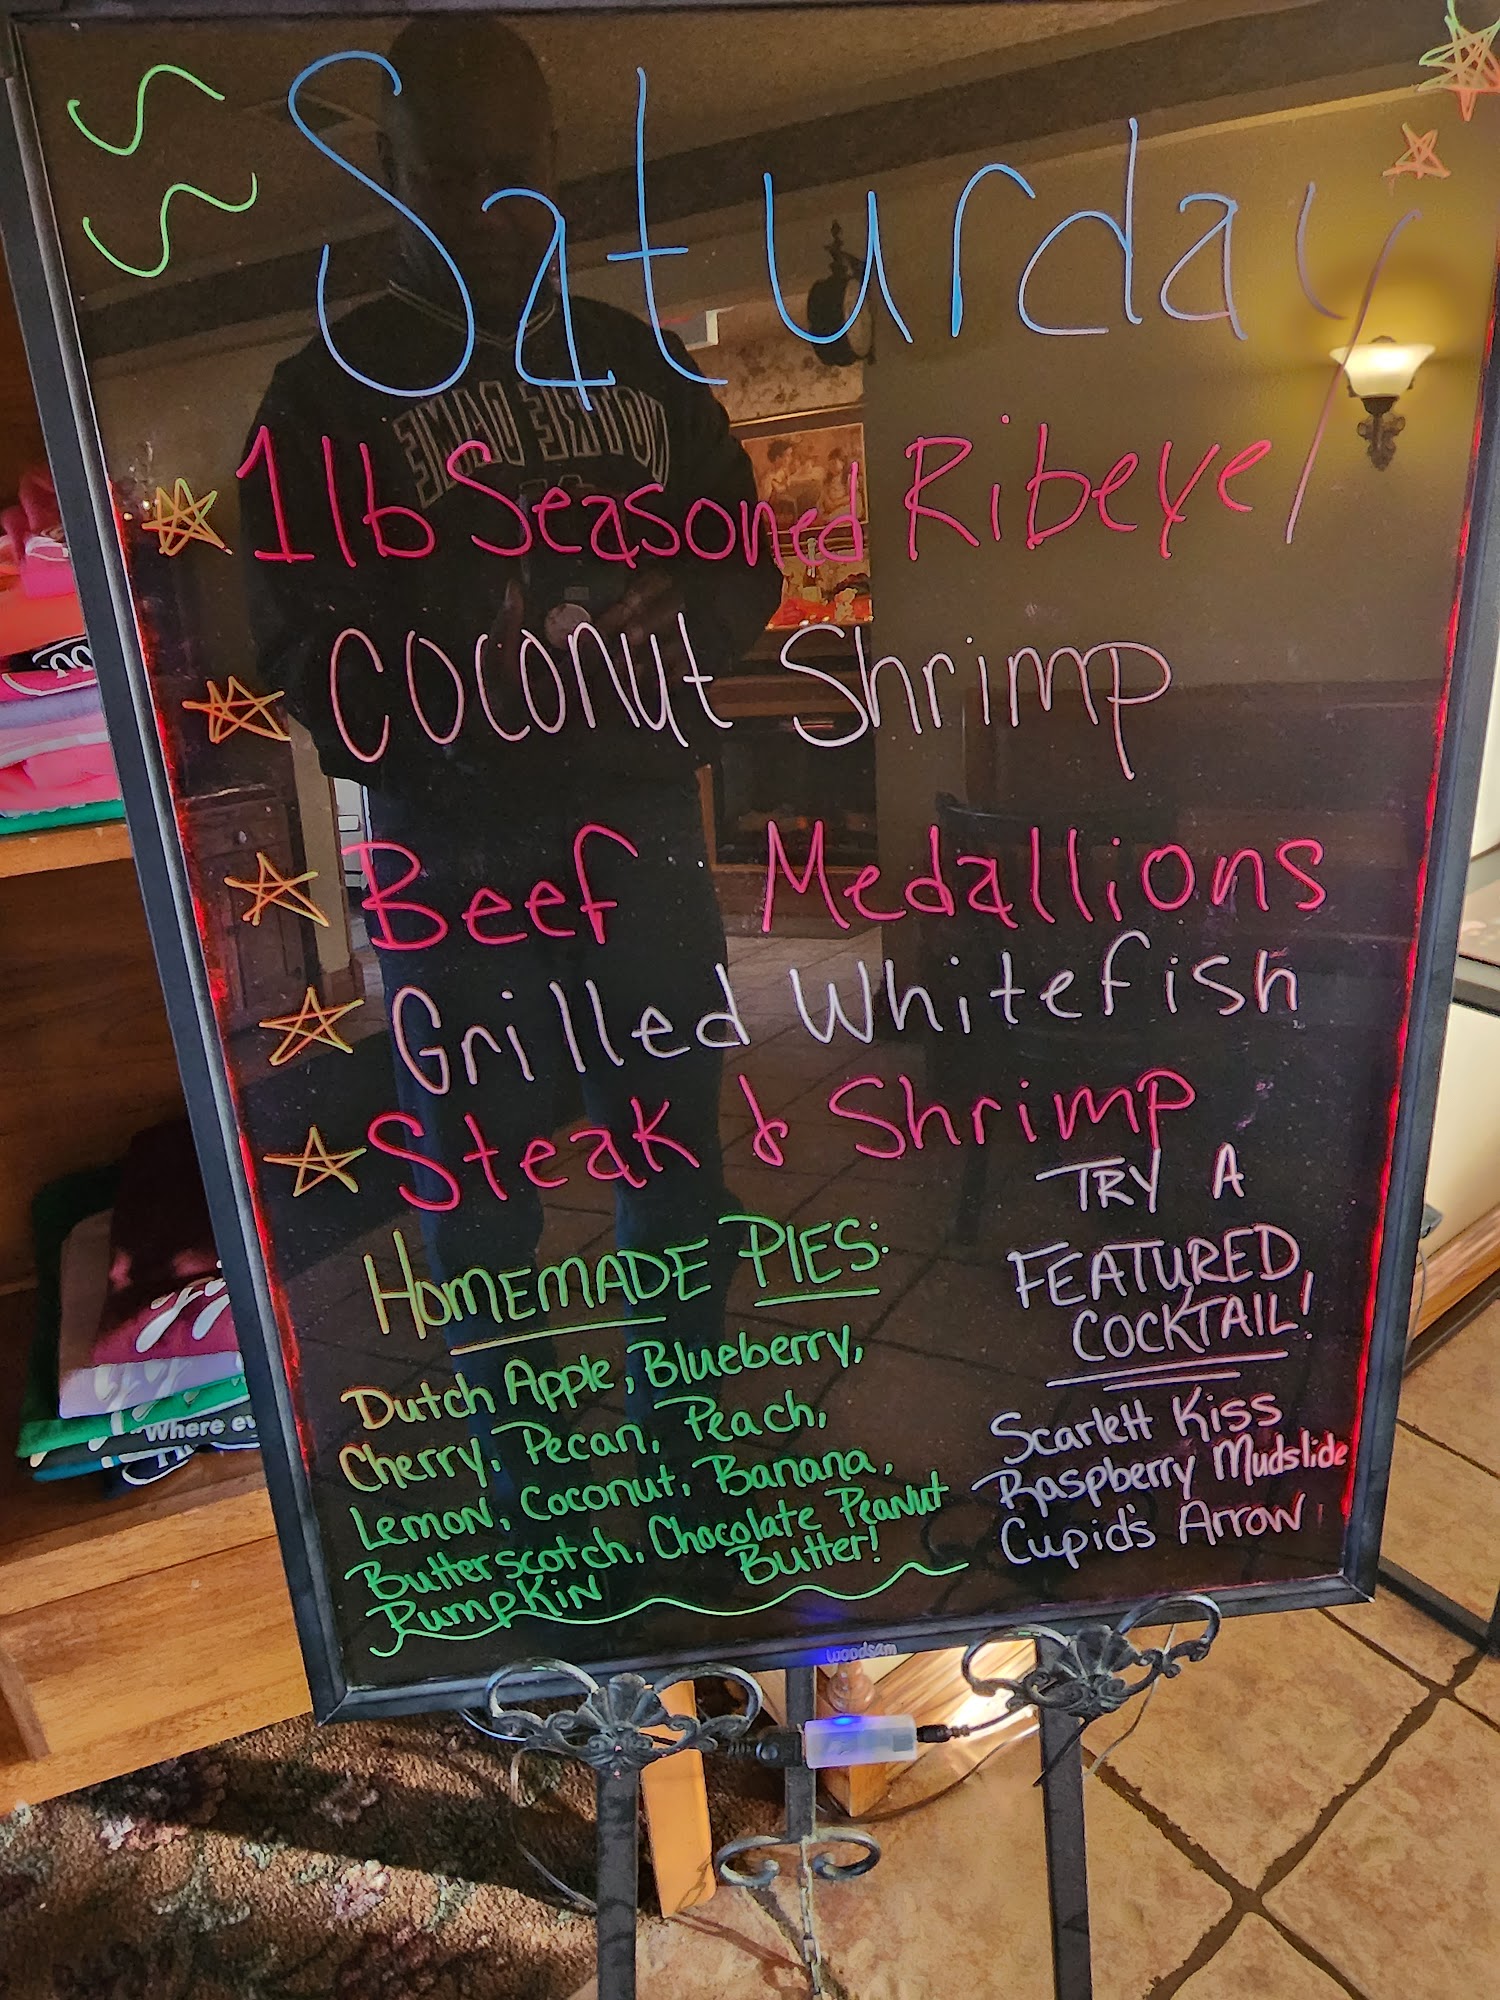 Saturday
1 lb Seasoned Ribeye
Coconut Shrimp
Beef Medallions
Grilled Whitefish
Steak & Shrimp
HOMEMADE PIES:
Dutch Apple, Blueberry,
Cherry, Pecan, Peach,
Lemon, Coconut, Banana,
Butterscotch, Chocolate Peanut
Butter!
Pumpkin
TRY A
FEATURED
COCKTAIL!
Scarlett Kiss
Raspberry Mudslide
Cupid's Arrow
woodsam
NOTRE DAME
Where ev